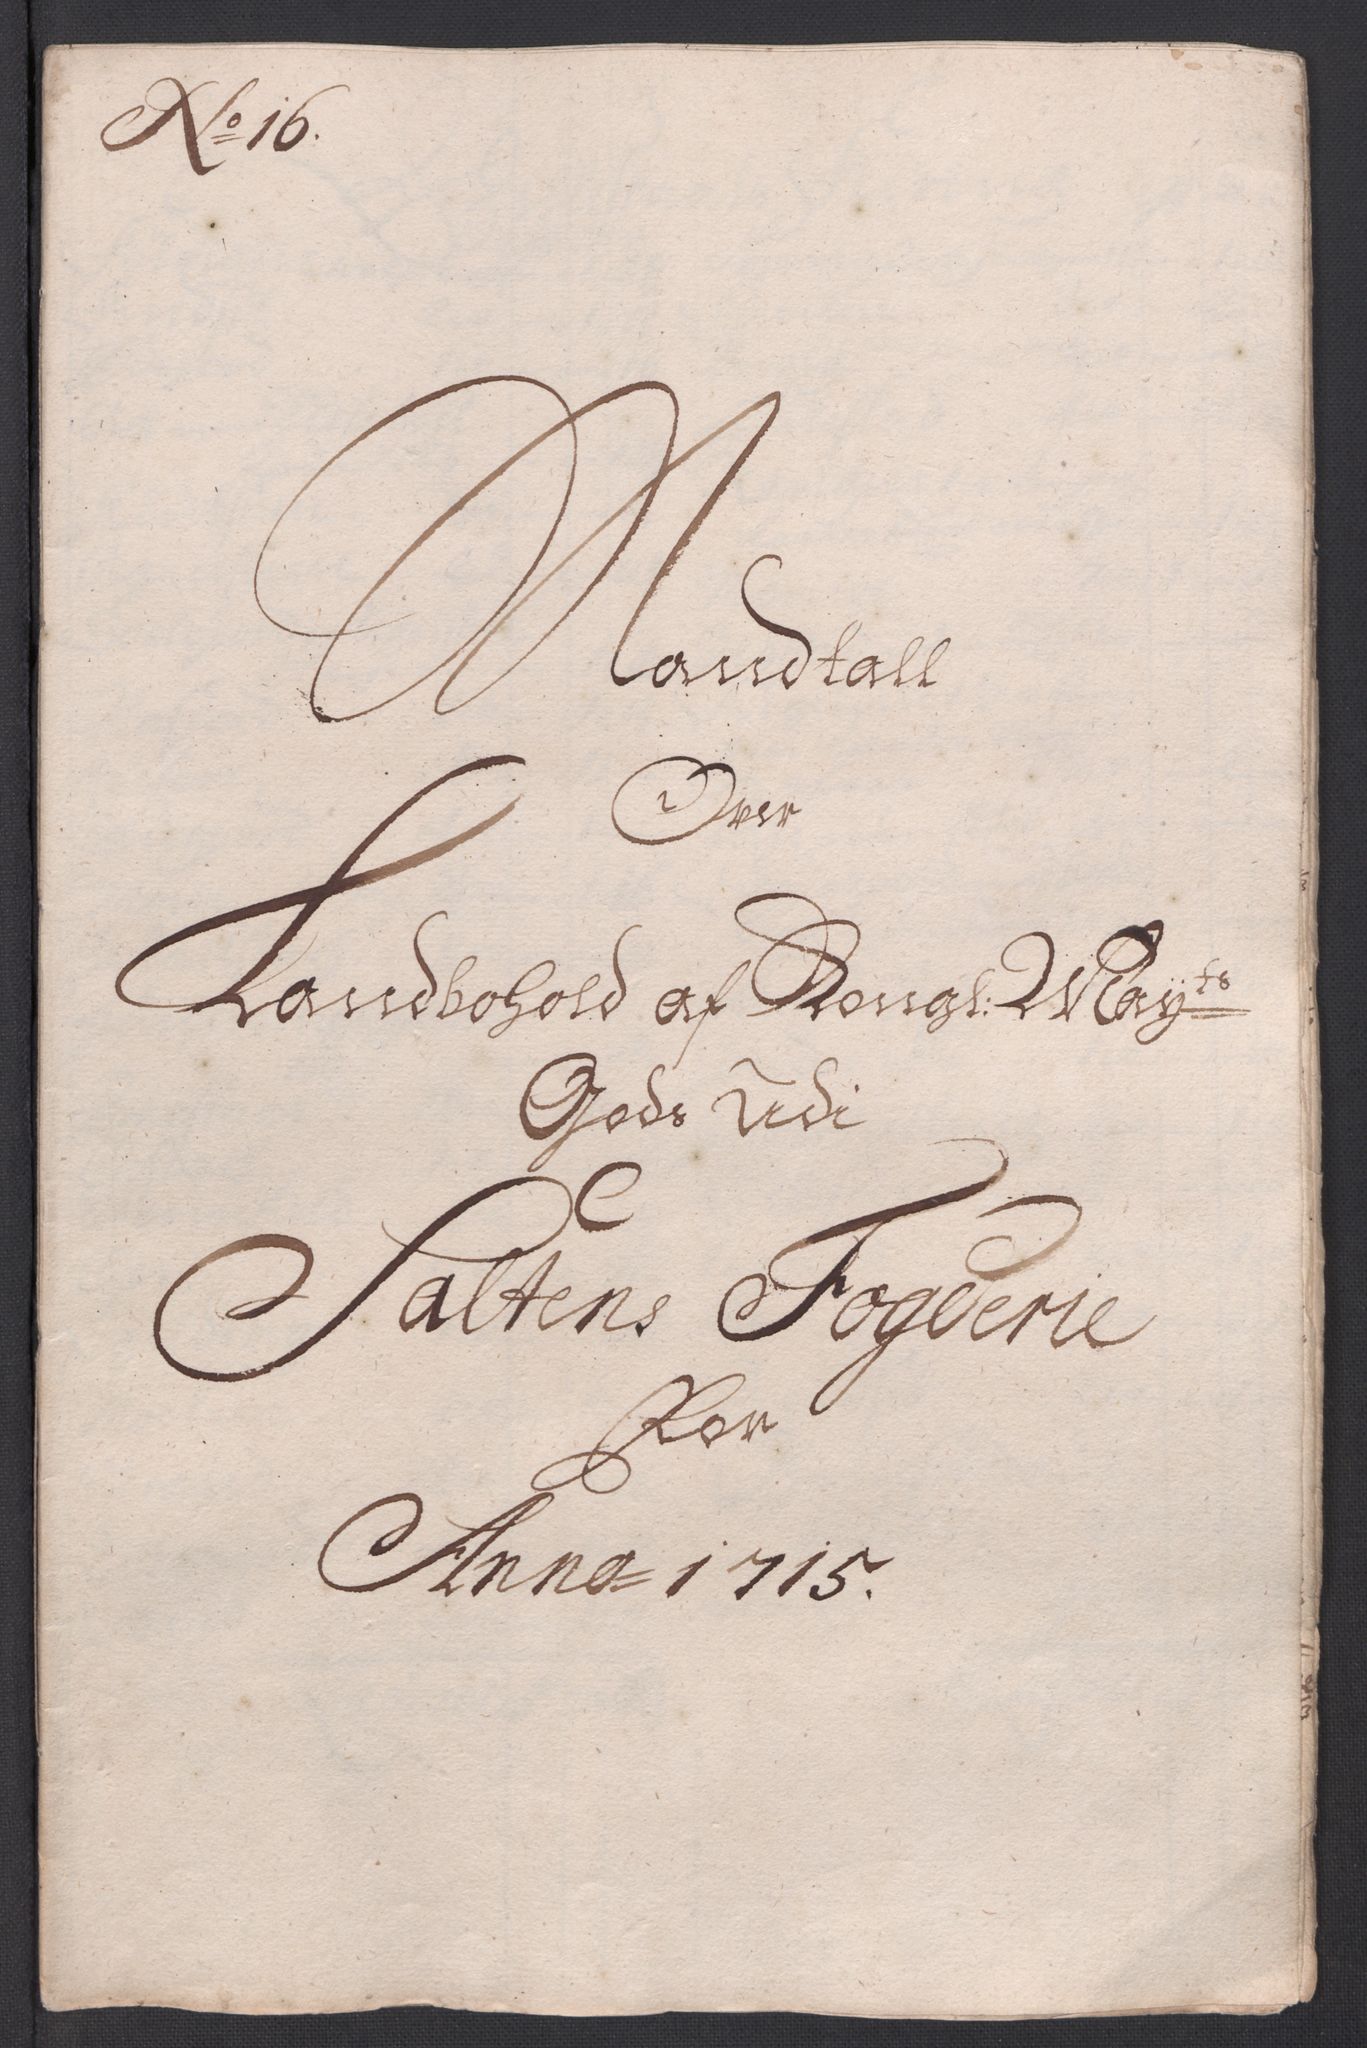 No 16.
Mandtall
Over
Landbohold af Kongl: Mayts
Gods Udi
Saltens Fogderie
For
Anno 1715.